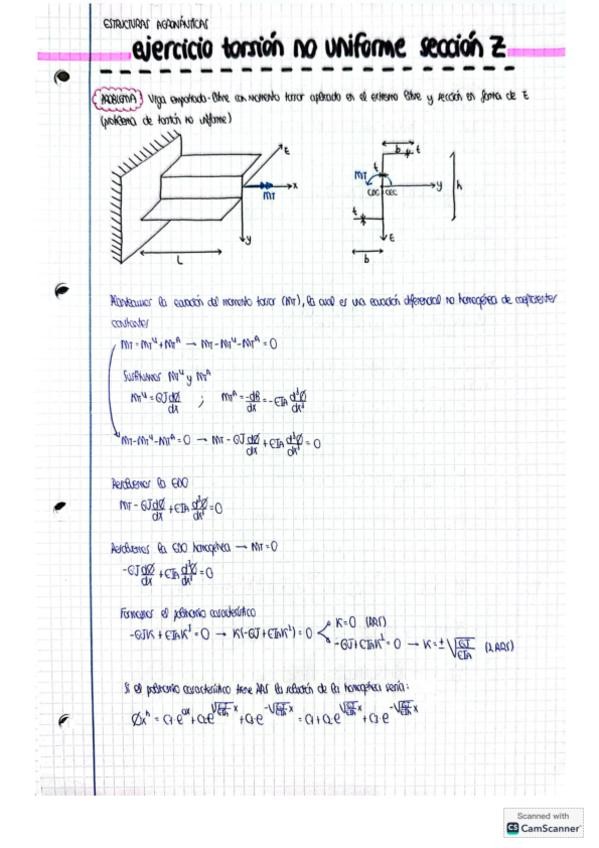 ESTRUCTURAS AERONÁUTICAS
ejercicio torsión no uniforme sección Z
PROBLEMA Viga empotrada-libre con momento torsor aplicado en el extremo libre y sección en forma de Z
(problema de torsión no uniforme)
z
x
MT
y
L
b
t
MT
CDG CEC
y
h
t
z
b
Planteamos la ecuación del momento torsor (MT), la cual es una ecuación diferencial no homogénea de coeficientes
constantes
MT = MTᵁ + MTᴬ → MT - MTᵁ - MTᴬ = 0
Sustituimos MTᵁ y MTᴬ
MTᵁ = GJ dØ/dx ; MTᴬ = -dB/dx = -EIA d³Ø/dx³
MT - MTᵁ - MTᴬ = 0 → MT - GJ dØ/dx + EIA d³Ø/dx³ = 0
Resolvemos la EDO
MT - GJ dØ/dx + EIA d³Ø/dx³ = 0
Resolvemos la EDO homogénea → MT = 0
-GJ dØ/dx + EIA d³Ø/dx³ = 0
Formamos el polinomio característico
-GJK + EIAK³ = 0 → K(-GJ + EIAK²) = 0
K = 0 (1RS)
-GJ + EIAK² = 0 → K = ±√(GJ/EIA)
Si el polinomio característico tiene la solución de la homogénea sería:
Scanned with
CS CamScanner